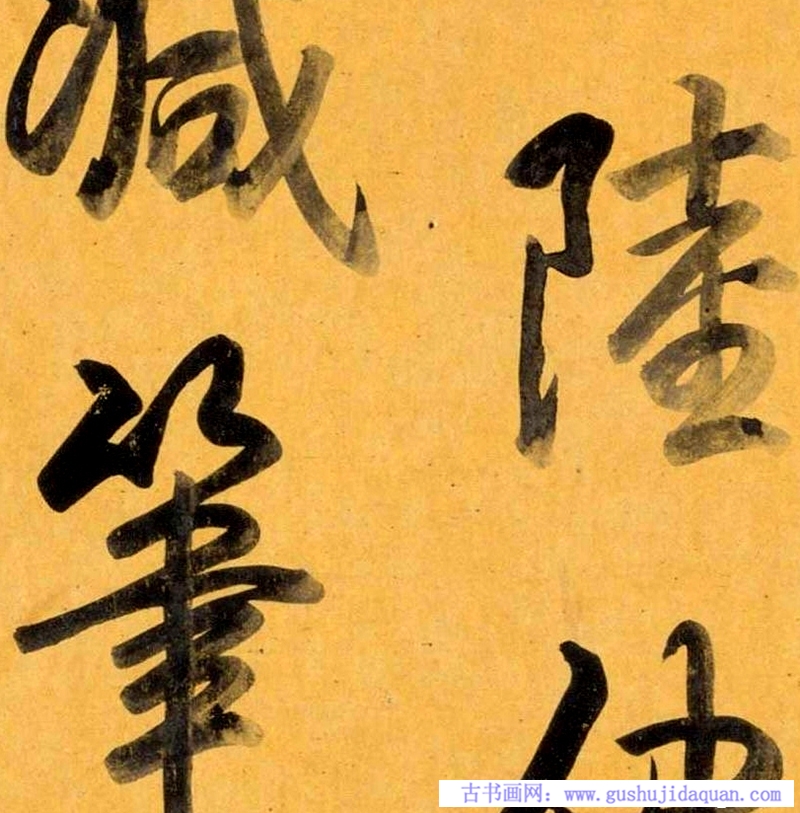 陸仲
減筆
古书画网：www.gushujidaquan.com